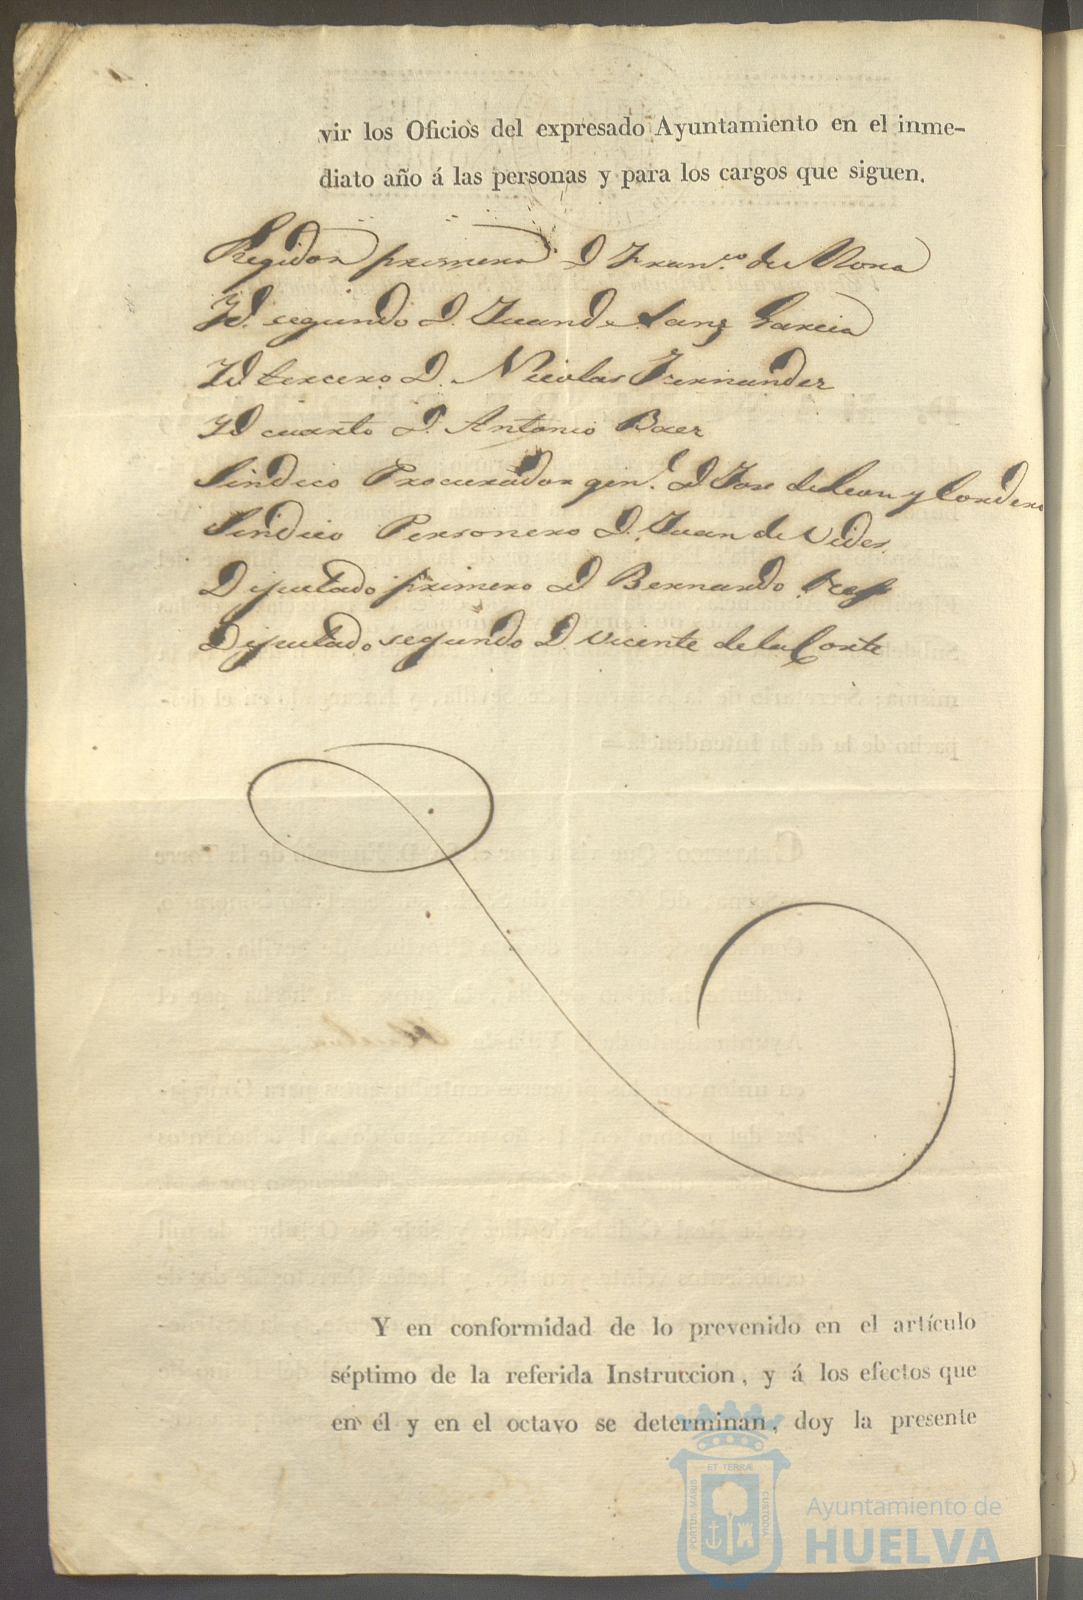 vir los Oficios del expresado Ayuntamiento en el inme-
diato año á las personas y para los cargos que siguen.
Regidor primero D Fran.co de Mora
Yd. segundo D. Juan de Sanz Garcia
Yd tercero D. Nicolas Fernandez
Yd cuarto D. Antonio Baez
Sindico Procurador gen.l D Jose de Leon y Cordero
Sindico Personero D. Juan de Vides
Diputado primero D Bernardo
Diputado segundo D. Vicente de la Corte
Y en conformidad de lo prevenido en el artículo
séptimo de la referida Instruccion, y á los efectos que
en él y en el octavo se determinan, doy la presente
ET TERRÆ
PORTUS MARIS
CUSTODIA
Ayuntamiento de
HUELVA